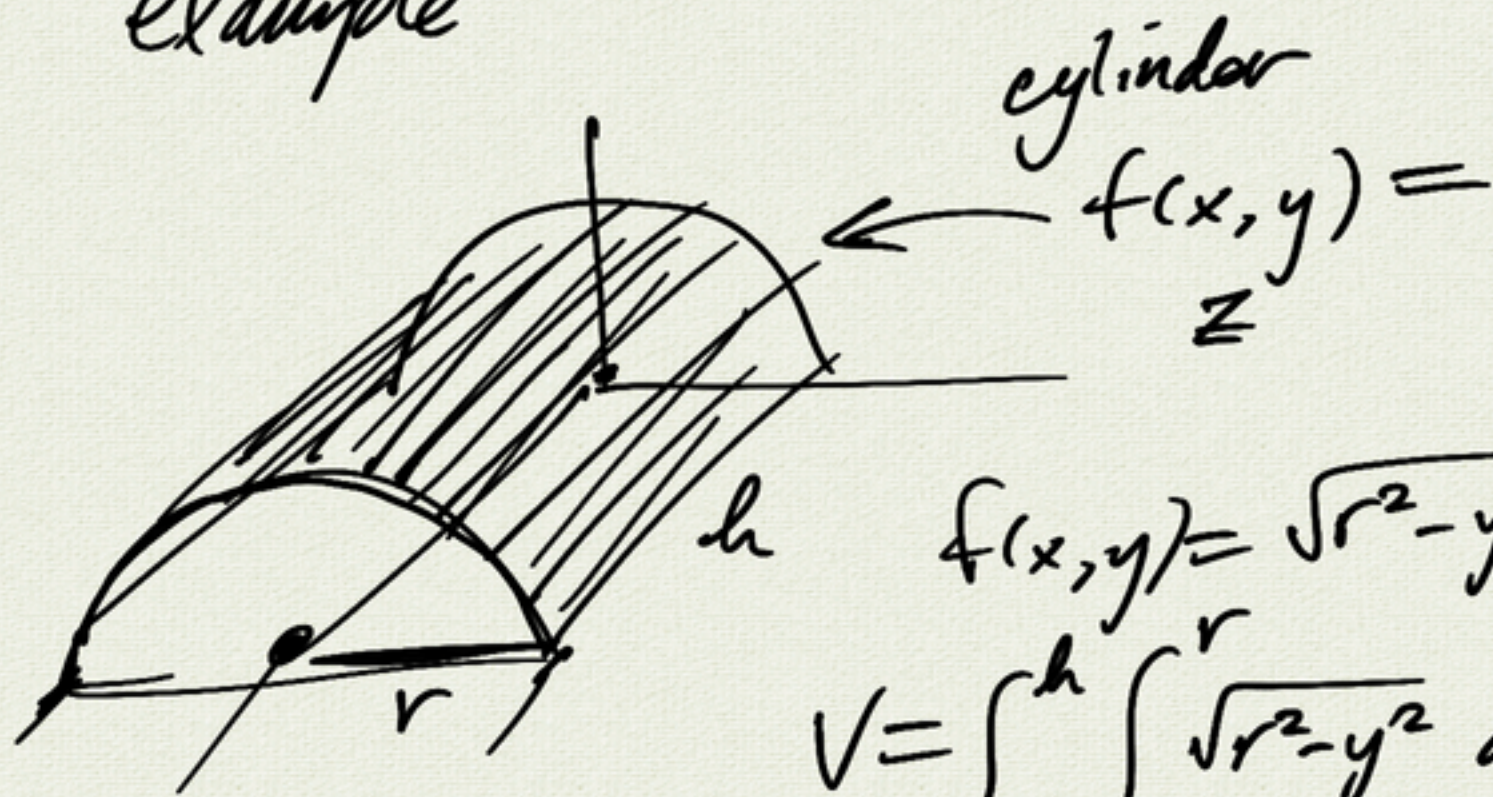 example
cylinder
f(x, y) =
z
h
f(x,y)= √r²- y
r
V= ∫ʰ ∫ʳ √r²-y²